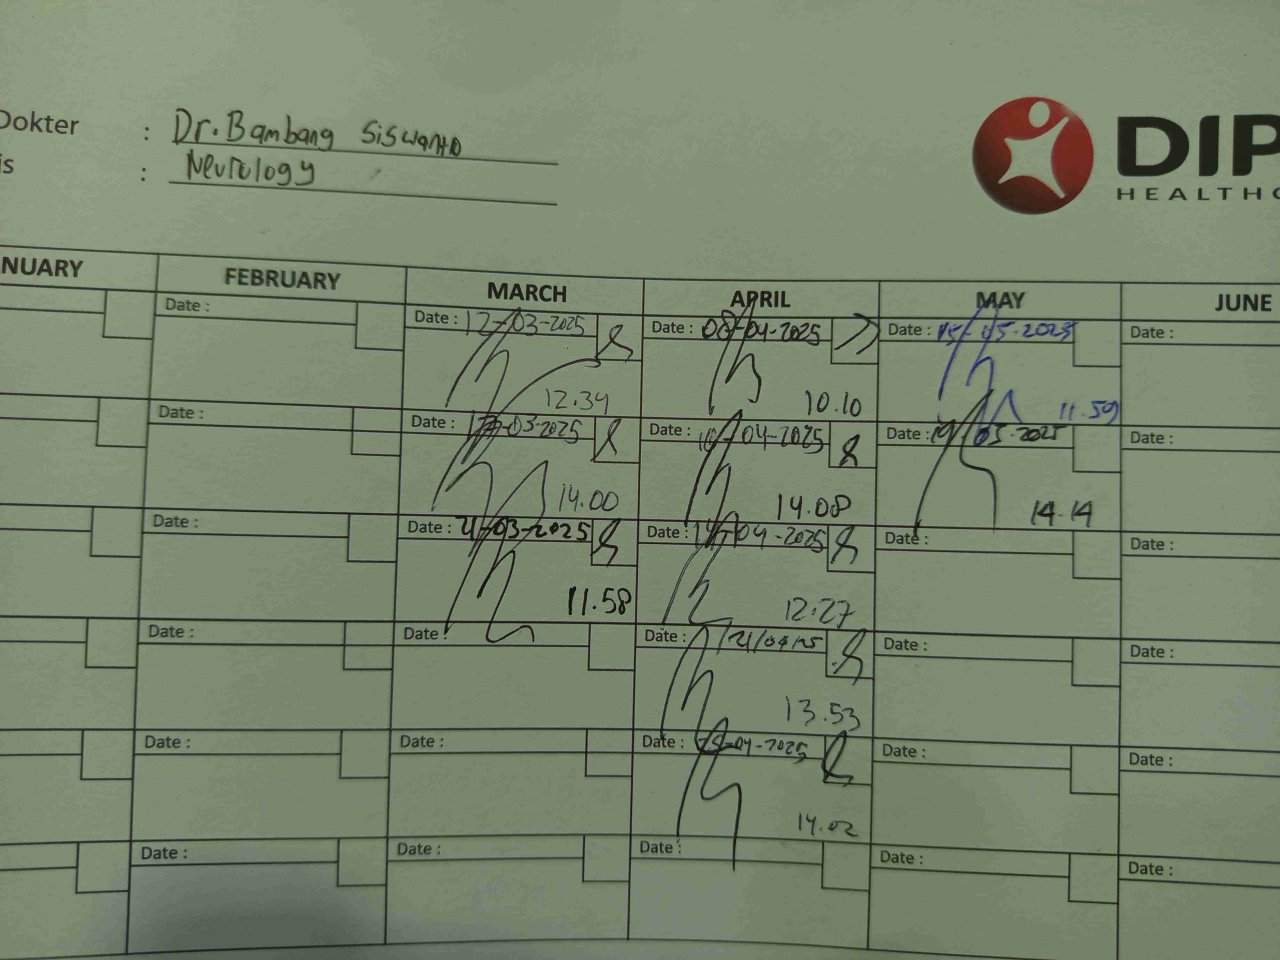 Dokter : Dr. Bambang Siswanto
is : Neurology
DIP
HEALTHC
NUARY FEBRUARY MARCH APRIL MAY JUNE
Date : Date : 12-03-2025 Date : 08-04-2025 Date : 05-05-2025 Date :
12.34 10.10 11.59
Date : Date : -03-2025 Date : 10-04-2025 Date : 05-2025 Date :
14.00 14.08 14.14
Date : Date : 21-03-2025 Date : -04-2025 Date : Date :
11.58 12.27
Date : Date : Date : 21/04/25 Date : Date :
13.53
Date : Date : Date : -04-2025 Date : Date :
14.02
Date : Date : Date : Date : Date :